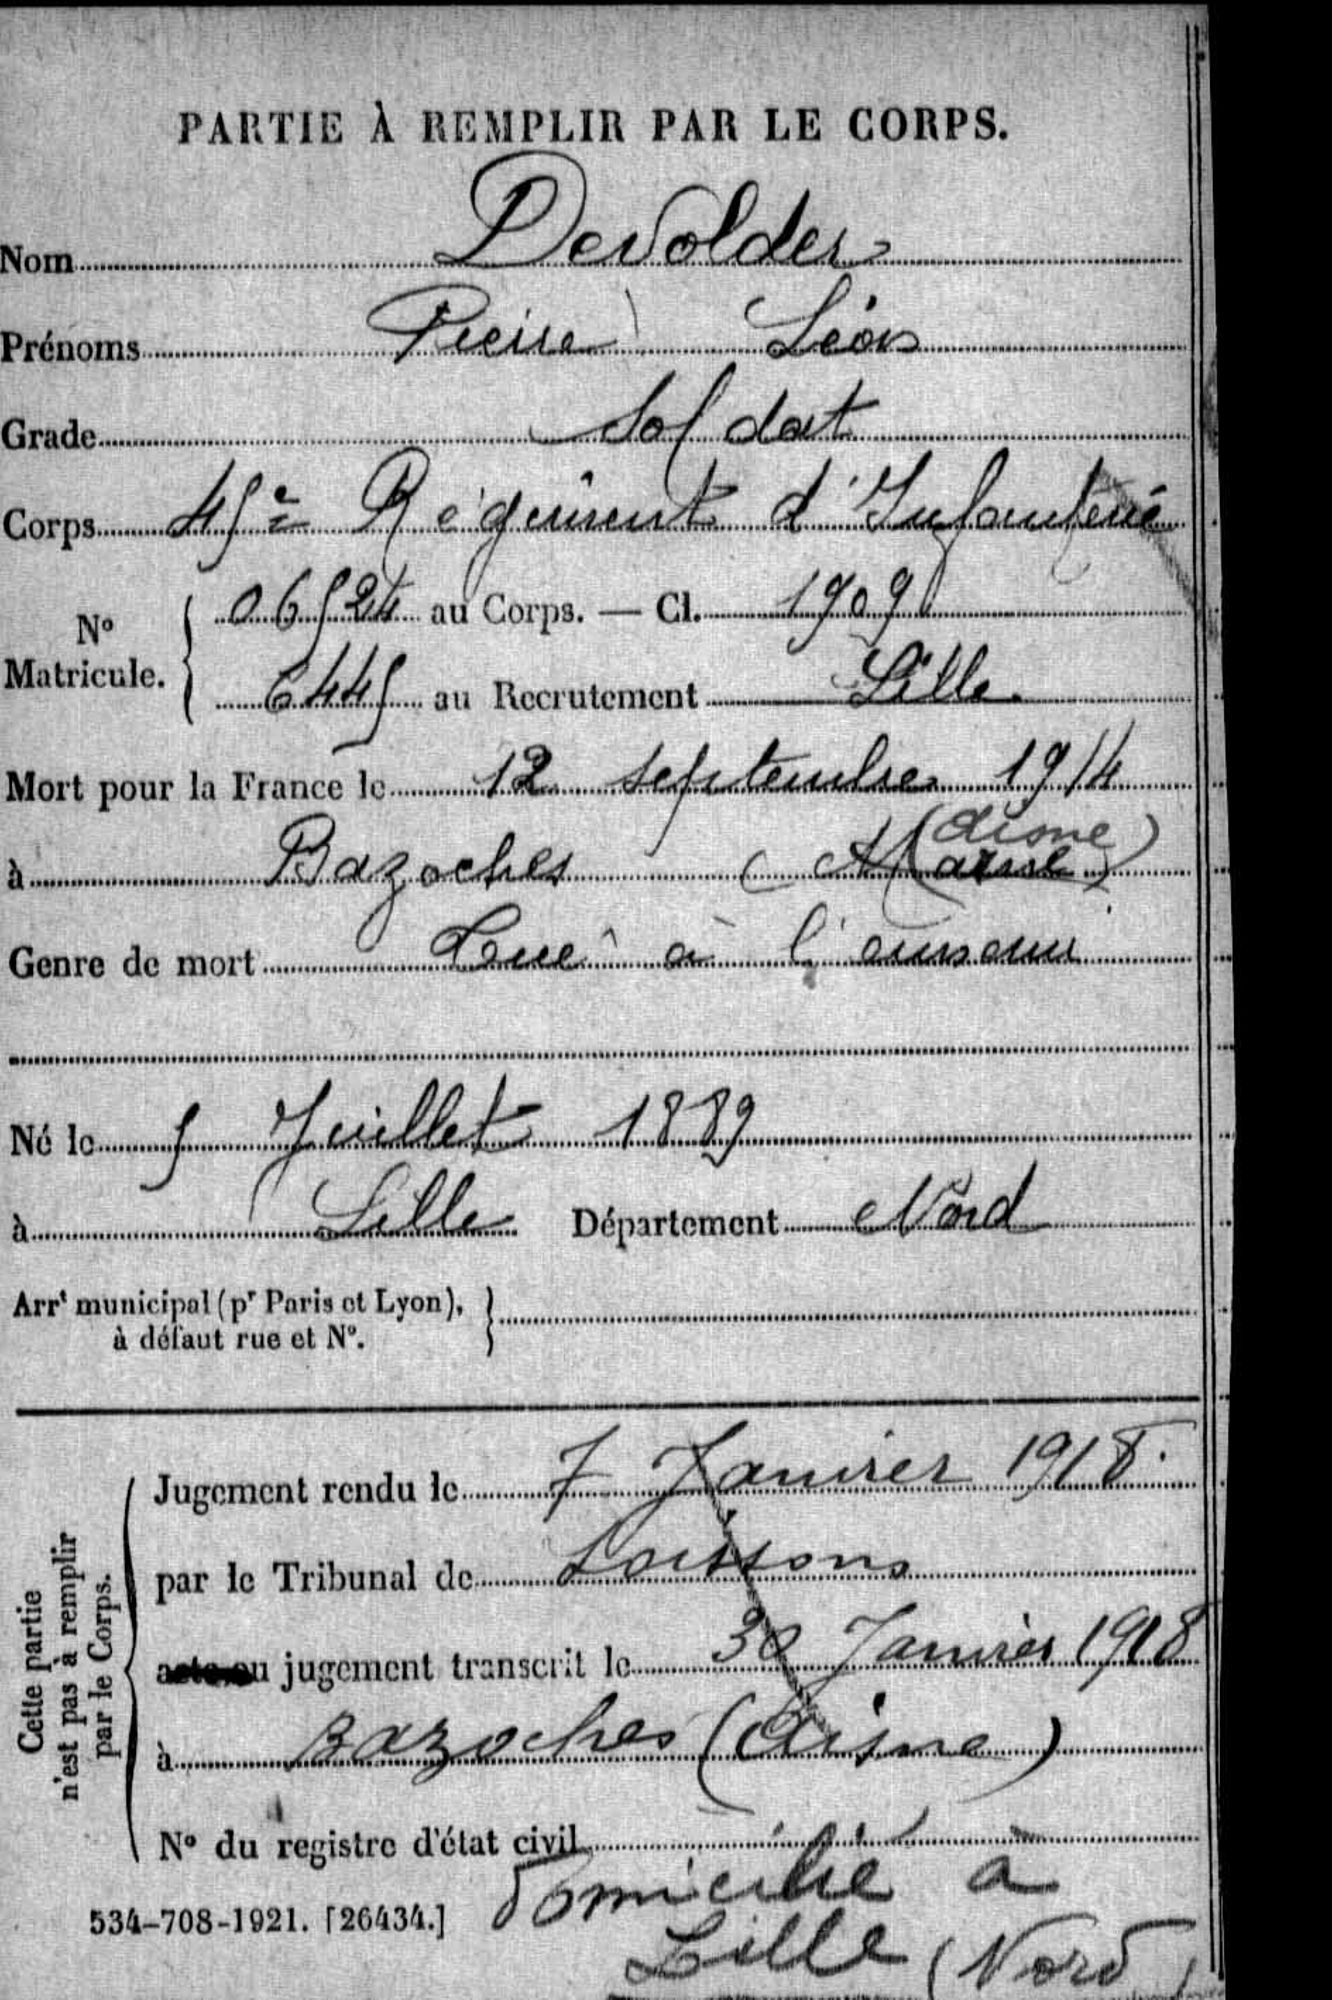 PARTIE À REMPLIR PAR LE CORPS.
Nom Devolder
Prénoms Pierre Léon
Grade Soldat
Corps 45e Régiment d'Infanterie
N° Matricule. 06524 au Corps. — Cl. 1909
6445 au Recrutement Lille
Mort pour la France le 12 septembre 1914
(Aisne)
à Bazoches (Marne)
Genre de mort Tué à l'ennemi
Né le 5 Juillet 1889
à Lille Département Nord
Arrt municipal (pr Paris et Lyon),
à défaut rue et N°.
Cette partie
n'est pas à remplir
par le Corps.
Jugement rendu le 7 Janvier 1918.
par le Tribunal de Soissons
acte ou jugement transcrit le 30 Janvier 1918
à Bazoches (Aisne)
N° du registre d'état civil
534-708-1921. [26434.]
domicilié à
Lille (Nord)